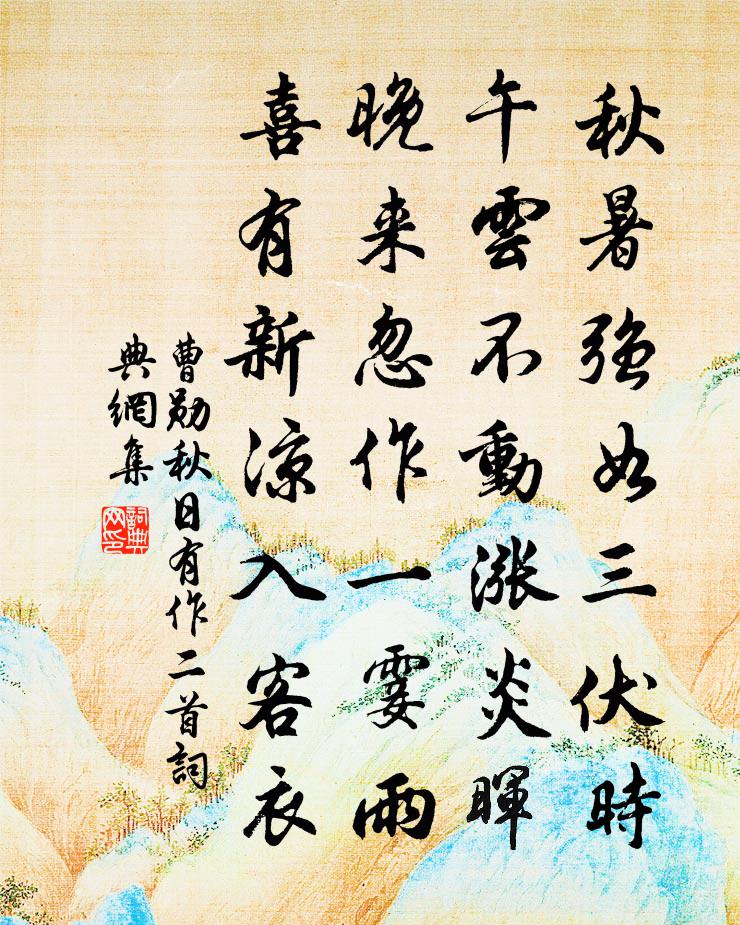 秋暑強如三伏時
午雲不動漲炎暉
晚来忽作一霎雨
喜有新涼入客衣
曹勛秋日有作二首詞
典網集
詞典
网印